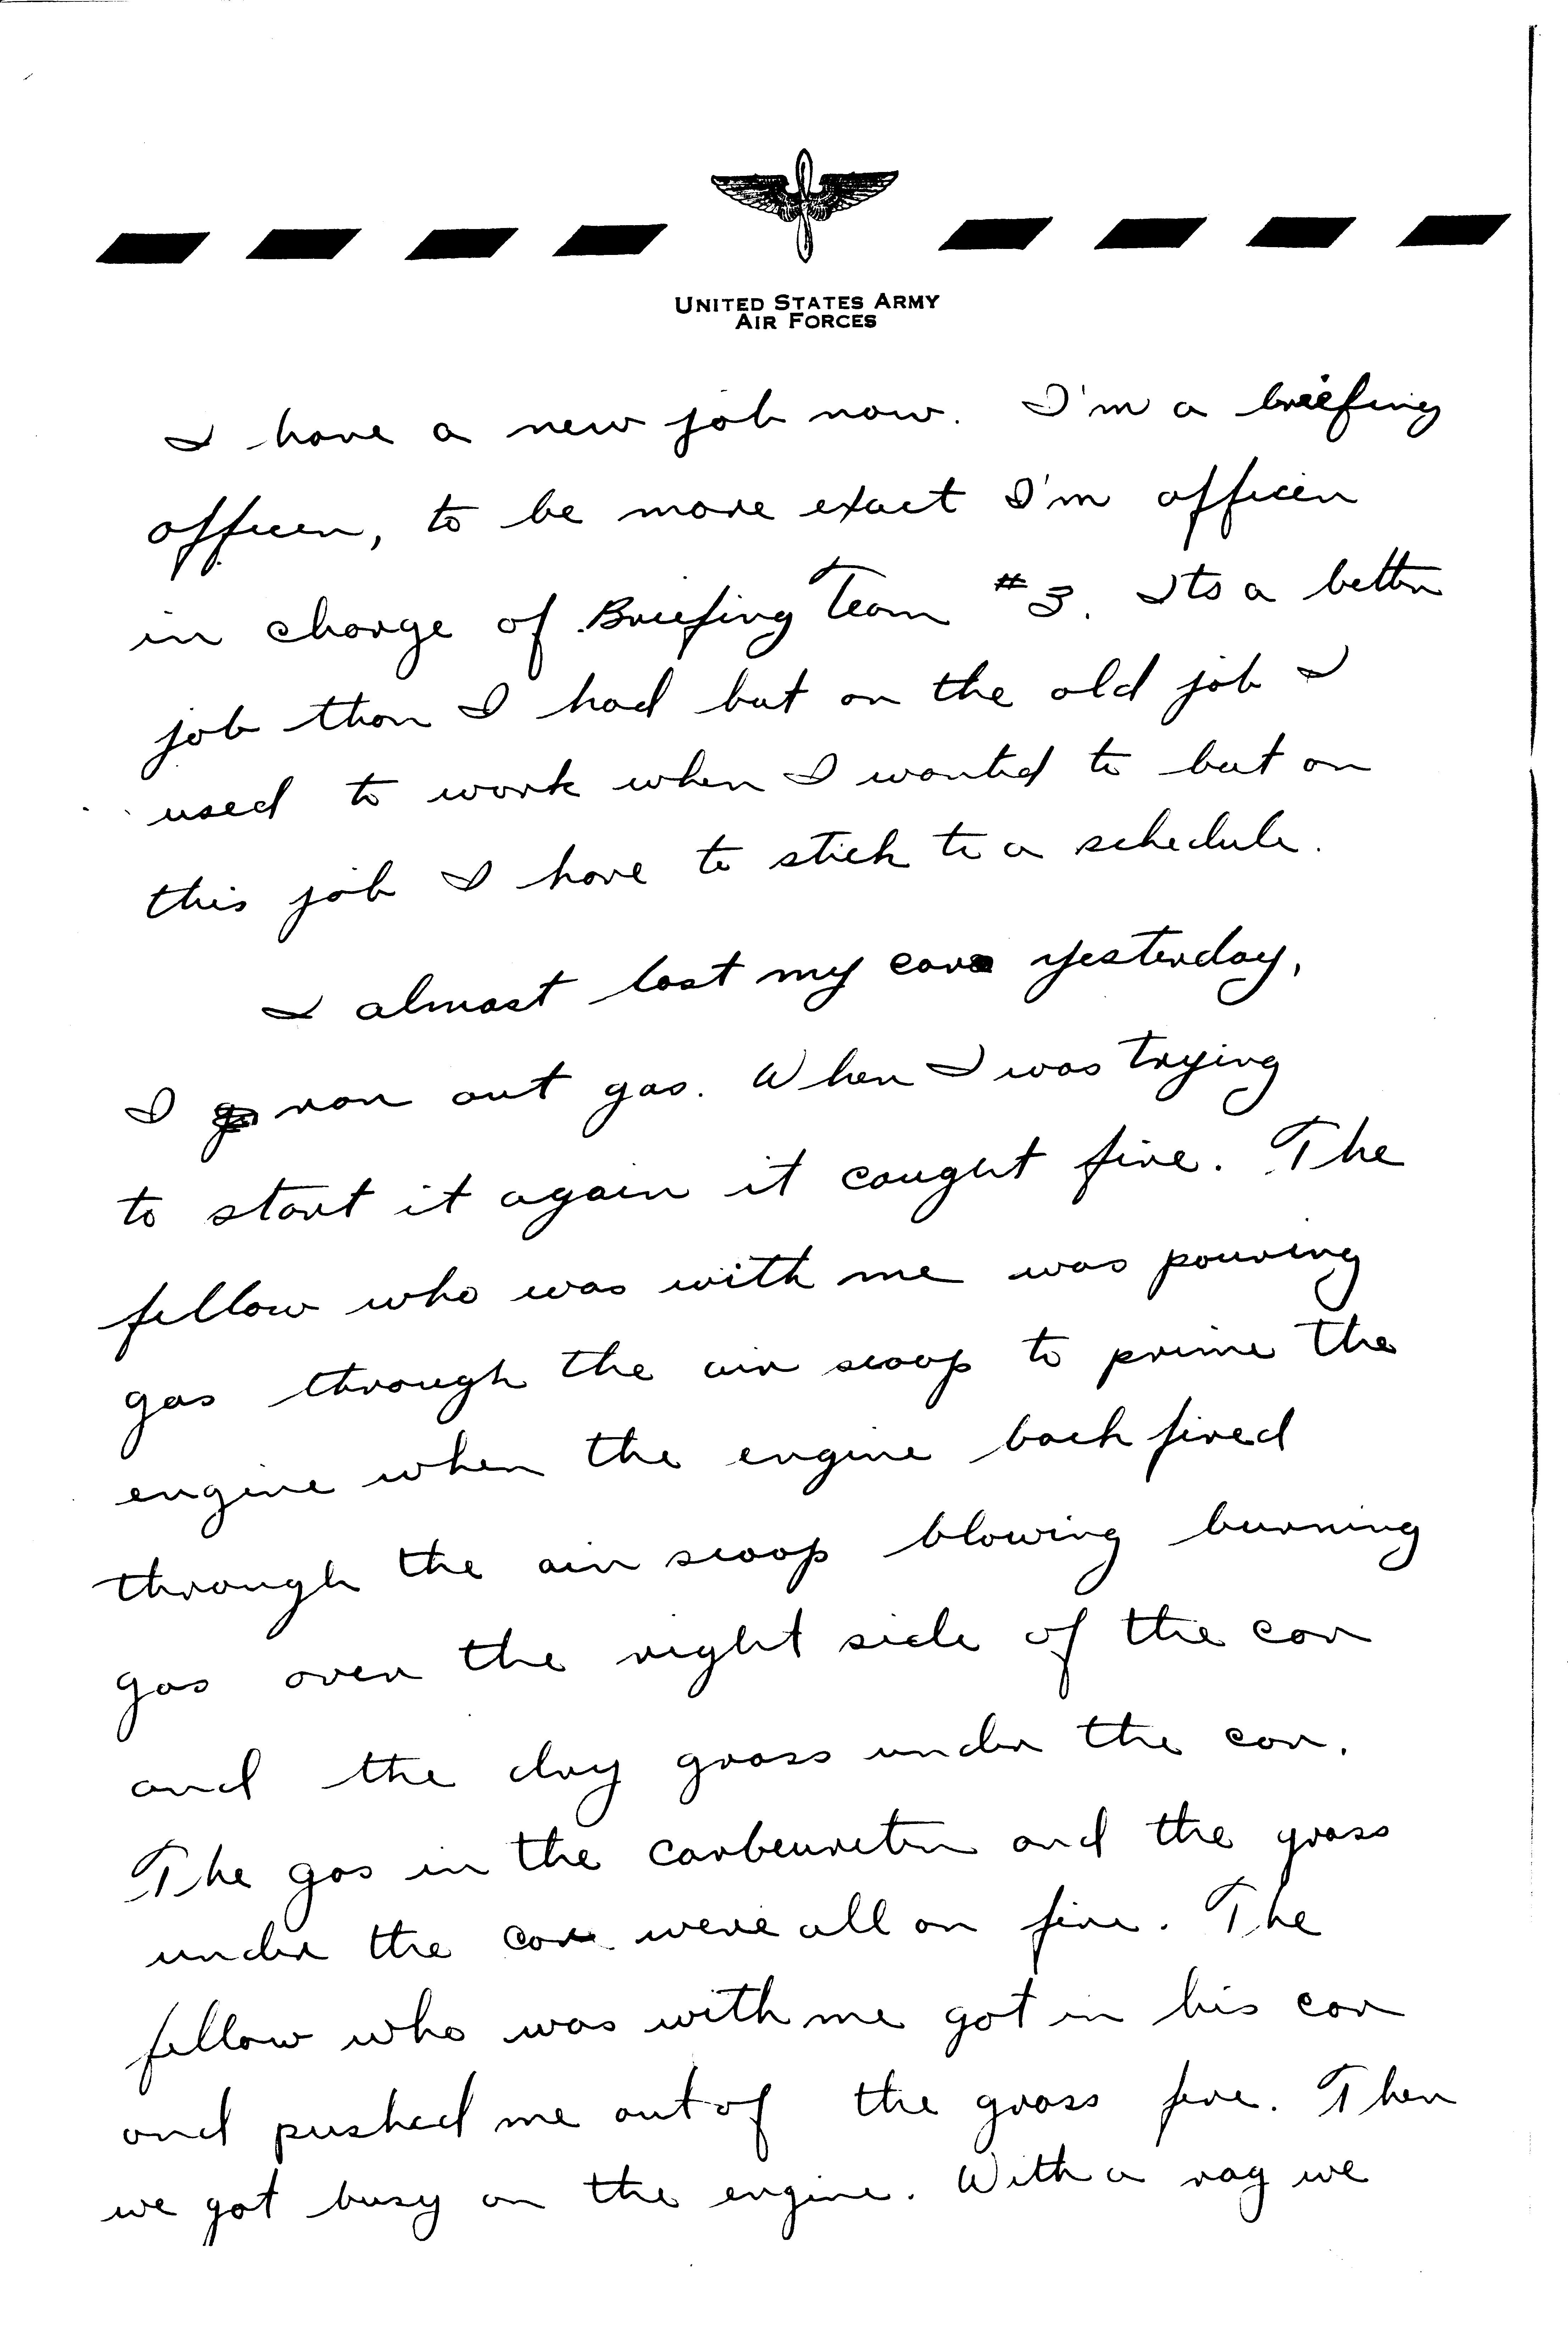 UNITED STATES ARMY
AIR FORCES
I have a new job now. I'm a briefing
officer, to be more exact I'm officer
in charge of Briefing Team #3. Its a better
job than I had but on the old job I
used to work when I wanted to but on
this job I have to stick to a schedule.
I almost lost my car yesterday,
I ran out gas. When I was trying
to start it again it caught fire. The
fellow who was with me was pouring
gas through the air scoop to prime the
engine when the engine back fired
through the air scoop blowing burning
gas over the right side of the car
and the dry grass under the car.
The gas in the carbeuretor and the grass
under the car were all on fire. The
fellow who was with me got in his car
and pushed me out of the grass fire. Then
we got busy on the engine. With a rag we